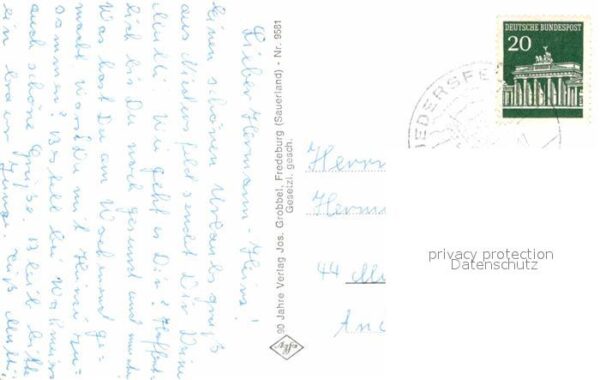 Lieber Hermann-Heinz!
Einen schönen Urlaubsgruß
aus Niedersfeld sendet Dir Deine
Mutti. Wie geht es Dir? Hoffent-
lich bist Du noch gesund und munter.
Was hast Du am Wochenende ge-
macht? Warst Du mit Heinz zu-
sammen? Bestelle bei
auch schöne Grüße. Bleib bitte
ein braver Junge. Gruß Mutti
90 Jahre Verlag Jos. Grobbel, Fredeburg (Sauerland) - Nr. 9581
Gesetzl. gesch.
Agfa
DEUTSCHE BUNDESPOST
20
IEDERSFE
Herrn
Herm
44 Mü
An
privacy protection
Datenschutz